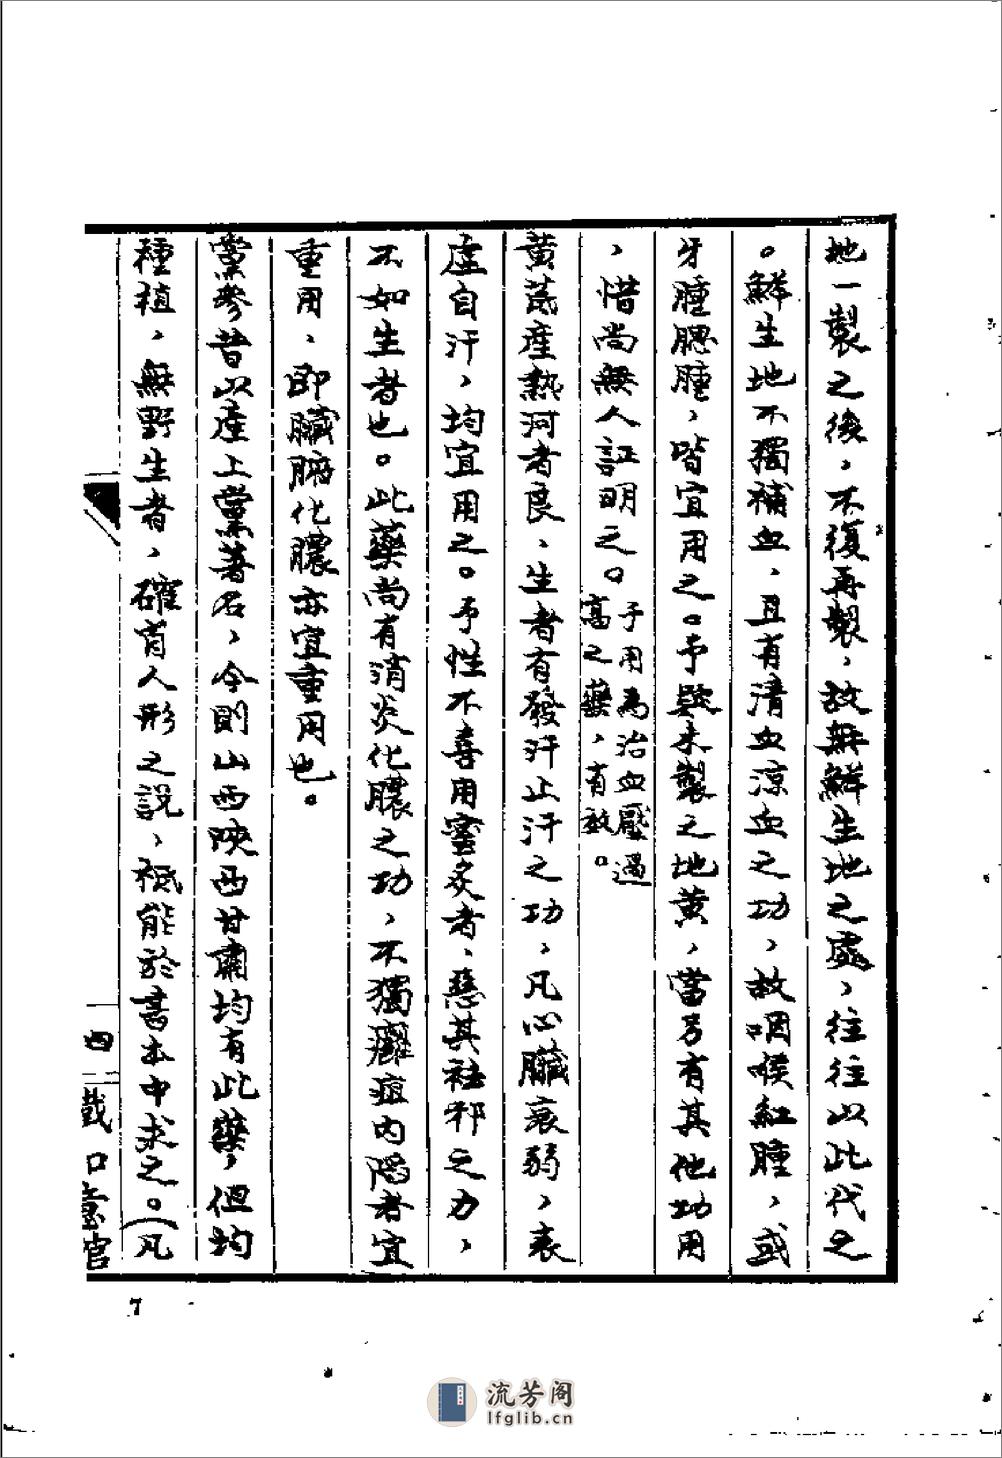 地一製之後，不復再製，故無鮮生地之處，往往以此代之
。鮮生地不獨補血，且有清血涼血之功，故咽喉紅腫，或
牙腫腮腫，皆宜用之。予疑未製之地黄，當另有其他功用
，惜尚無人証明之。予用為治血壓過
高之藥，有效。
黄芪產熱河者良，生者有發汗止汗之功，凡心臟衰弱，表
虛自汗，均宜用之。予性不喜用蜜炙者，慈其袪邪之力，
不如生者也。此藥尚有消炎化膿之功，不獨癰疽內陷者宜
重用，即臟腑化膿亦宜重用也。
黨參昔以產上黨著名，今則山西陝西甘肅均有此藥，但均
種植，無野生者，確肖人形之説，祗能於書本中求之。（凡
四
戲口
官
7
流芳阁
lfglib.cn